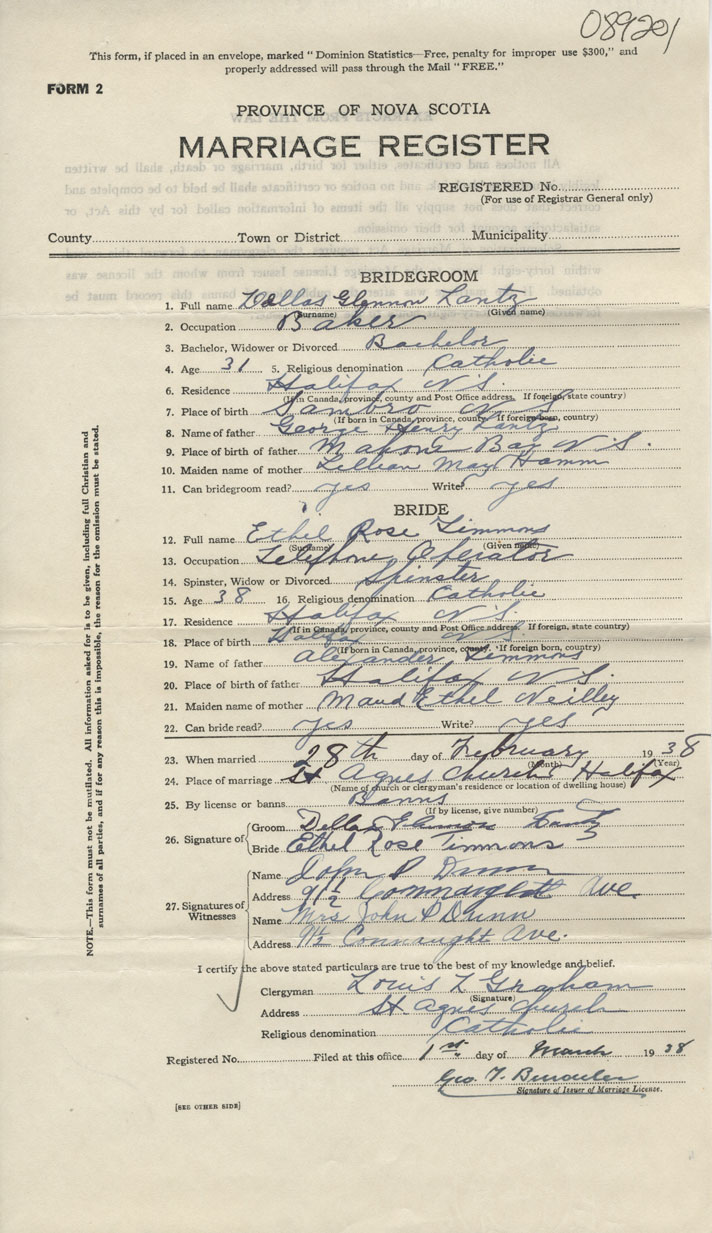 089201
This form, if placed in an envelope, marked "Dominion Statistics—Free, penalty for improper use $300," and
properly addressed will pass through the Mail "FREE."
FORM 2
PROVINCE OF NOVA SCOTIA
MARRIAGE REGISTER
REGISTERED No.
(For use of Registrar General only)
County Town or District Municipality
BRIDEGROOM
1. Full name Dallas Glennon Lantz
(Surname) (Given name)
2. Occupation Baker
3. Bachelor, Widower or Divorced Bachelor
4. Age 31 5. Religious denomination Catholic
6. Residence Halifax N.S.
(If in Canada, province, county and Post Office address. If foreign, state country)
7. Place of birth Sambro N.S.
(If born in Canada, province, county. If foreign born, country)
8. Name of father George Henry Lantz
9. Place of birth of father Mahone Bay N.S.
10. Maiden name of mother Lillian May Hamm
11. Can bridegroom read? yes Write? yes
BRIDE
12. Full name Ethel Rose Timmons
(Surname) (Given name)
13. Occupation Telephone Operator
14. Spinster, Widow or Divorced Spinster
15. Age 38 16. Religious denomination Catholic
17. Residence Halifax N.S.
(If in Canada, province, county and Post Office address. If foreign, state country)
18. Place of birth N.S.
(If born in Canada, province, county. If foreign born, country)
19. Name of father Alexander Timmons
20. Place of birth of father Halifax N.S.
21. Maiden name of mother Maud Ethel Neilley
22. Can bride read? yes Write? yes
23. When married 28th day of February 1938
(Month) (Year)
24. Place of marriage St Agnes Church Halifax
(Name of church or clergyman's residence or location of dwelling house)
25. By license or banns Banns
(If by license, give number)
26. Signature of
Groom Dallas Glennon Lantz
Bride Ethel Rose Timmons
27. Signatures of Witnesses
Name John P
Address 91½ Connaught Ave.
Name Mrs John P Dunn
Address 91½ Connaught Ave.
I certify the above stated particulars are true to the best of my knowledge and belief.
Clergyman Louis L Graham
(Signature)
Address St. Agnes Church
Religious denomination Catholic
Registered No. Filed at this office 1st day of March 1938
Geo. T.
Signature of Issuer of Marriage License.
[SEE OTHER SIDE]
NOTE.—This form must not be mutilated. All information asked for is to be given, including full Christian and
surnames of all parties, and if for any reason this is impossible, the reason for the omission must be stated.